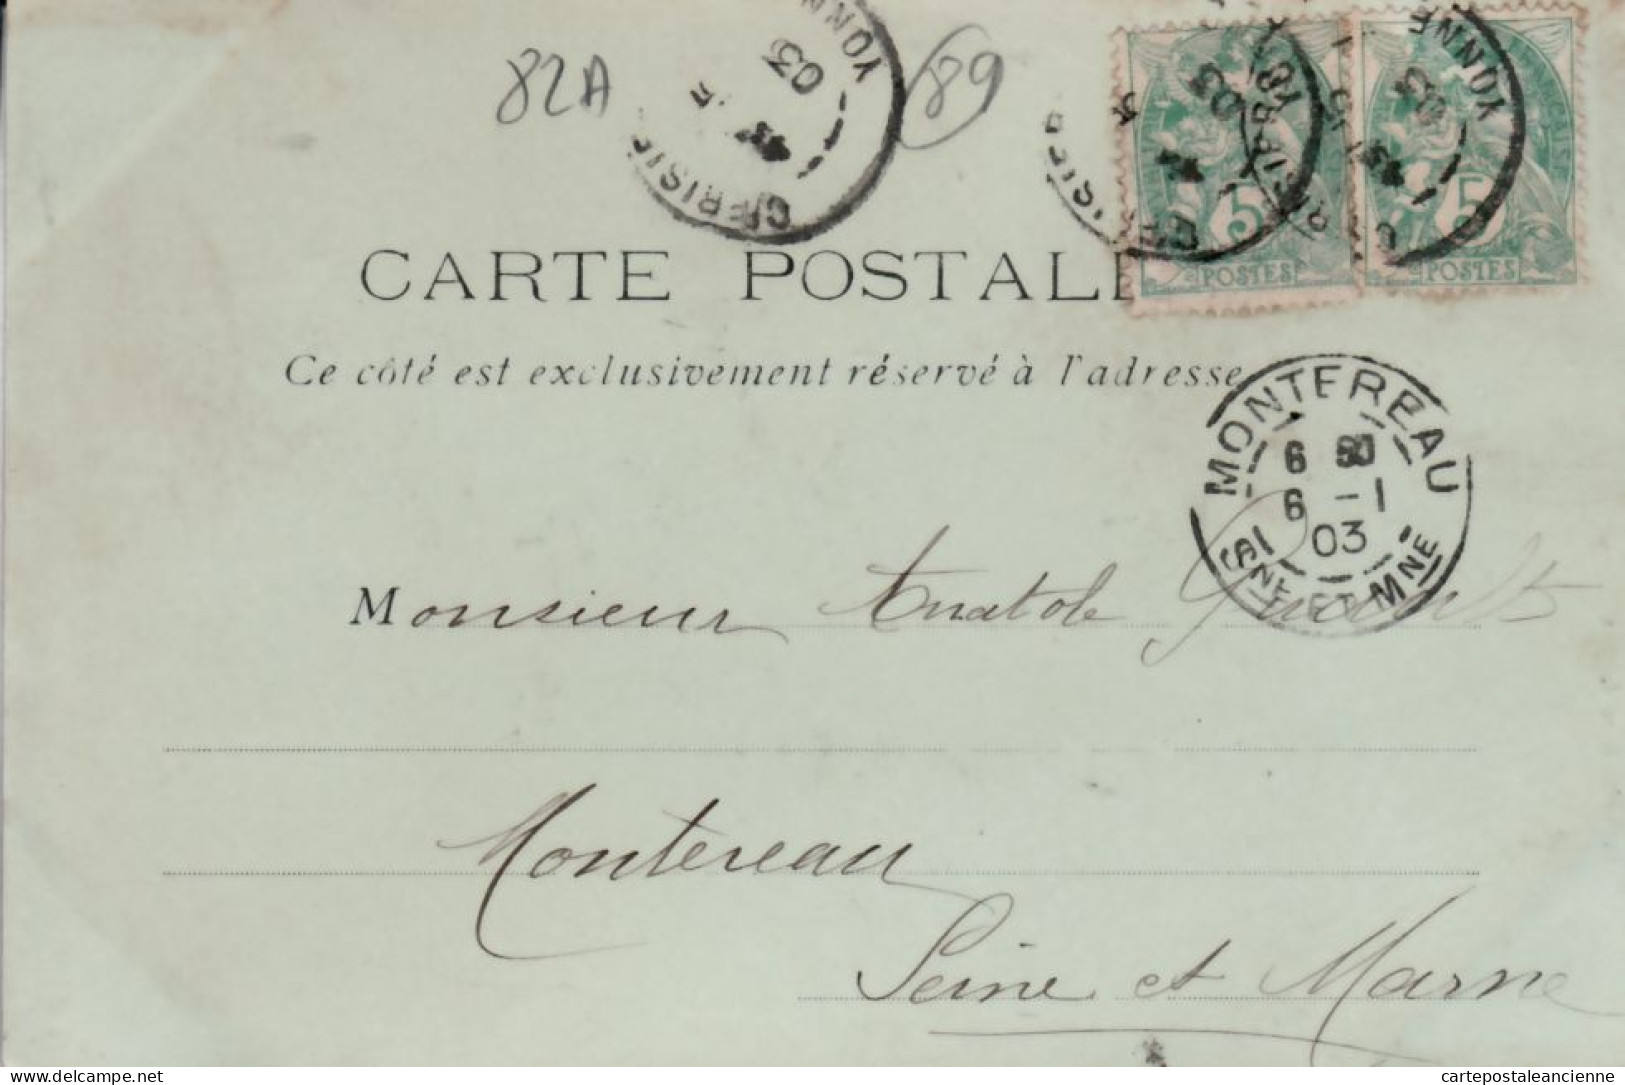 82A
89
CERISIE
YONN
03
03
YONNE
03
5
5
POSTES
POSTES
CARTE POSTALE
Ce côté est exclusivement réservé à l'adresse
MONTEREAU
6
6 -1
03
SNE ET MNE
Monsieur Anatole
Montereau
Seine et Marne
Delcampe.net
cartepostaleancienne